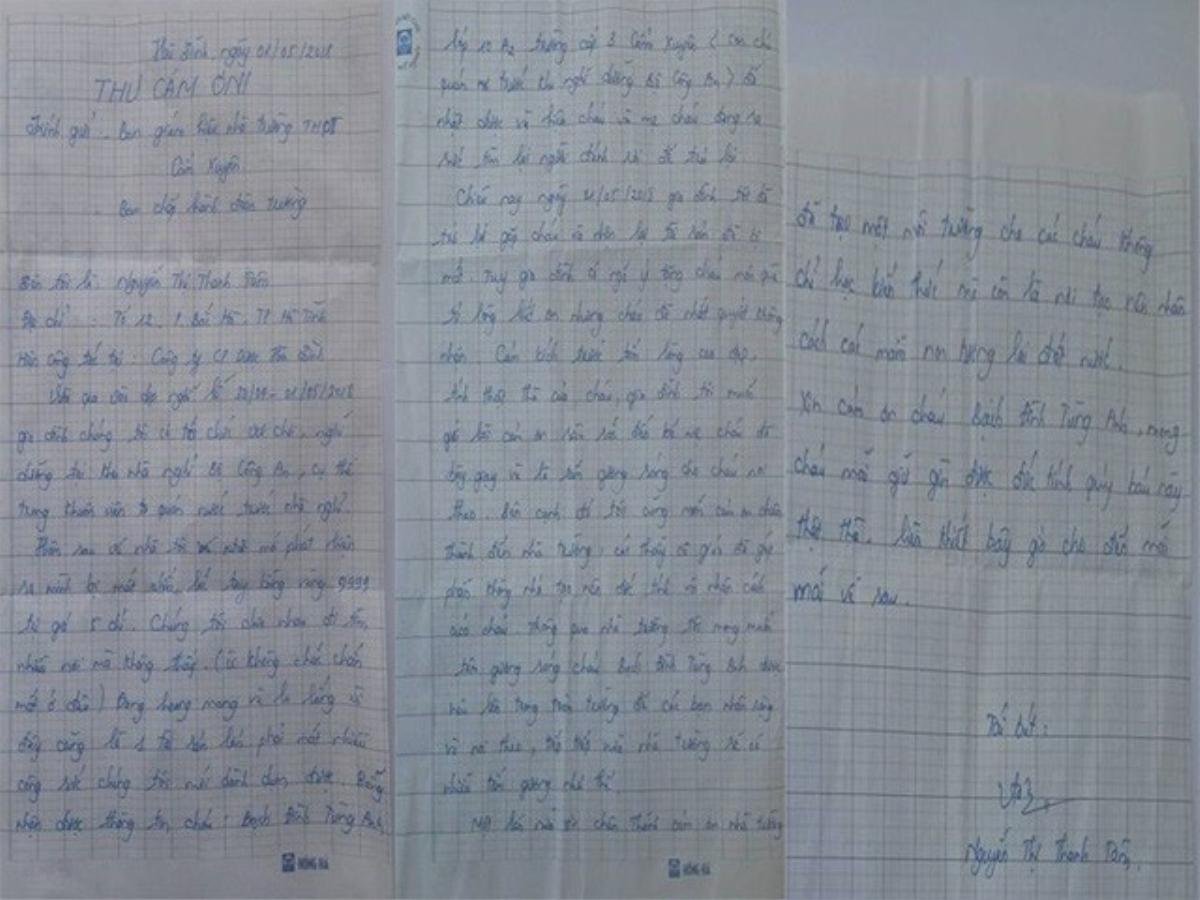 Hà Tĩnh, ngày 01/05/2018
THƯ CẢM ƠN!
Kính gửi: Ban giám hiệu nhà trường THPT
Cẩm Xuyên
- Ban chấp hành đoàn trường
Bên tôi là: Nguyễn Thị Thanh Tâm
Địa chỉ: Tổ 12, P. Bắc Hà, TP Hà Tĩnh
Hiện công tác tại: Công ty CP Dược Hà Tĩnh
Vừa qua dịp nghỉ lễ 01/05/2018
gia đình chúng tôi có tổ chức vui chơi, nghỉ
dưỡng tại khu nhà nghỉ Bộ Công An, cụ thể
trong khuôn viên quán nước trước nhà nghỉ.
Hôm sau về nhà tôi mới phát hiện
ra mình bị mất chiếc lắc tay bằng vàng 9999
trị giá 5 chỉ. Chúng tôi chia nhau đi tìm
nhiều nơi mà không thấy. (Vì không chắc chắn
mất ở đâu) Đang hoang mang và lo lắng vì
đây cũng là 1 tài sản lớn phải mất nhiều
công sức chúng tôi mới dành dụm được. Bỗng
nhận được thông tin cháu: Bạch Đình Tùng Anh,
lớp 10 A2 trường cấp 3 Cẩm Xuyên (con chủ
quán nước trước khu nghỉ dưỡng Bộ Công An) đã
nhặt được và hiện cháu và mẹ cháu đang ra
sức tìm lại người đánh rơi để trả lại.
Chiều nay ngày 01/05/2018 gia đình tôi đã
trở lại gặp cháu và nhận lại tài sản đã bị
mất. Tuy gia đình có ngỏ ý tặng cháu món quà
tỏ lòng biết ơn nhưng cháu đã nhất quyết không
nhận. Cảm kích trước tấm lòng cao đẹp,
tính thật thà của cháu, gia đình tôi muốn
gửi lời cảm ơn sâu sắc đến bố mẹ cháu đã
dạy và là tấm gương sáng cho cháu noi
theo. Bên cạnh đó tôi cũng muốn cảm ơn chân
thành đến nhà trường, các thầy cô giáo đã góp
phần không nhỏ tạo nên đức tính và nhân cách
của cháu. Thông qua nhà trường tôi mong muốn
tấm gương sáng cháu Bạch Đình Tùng Anh được
nêu lên trong toàn trường để các bạn nhân rộng
và noi theo, nhà trường sẽ có
nhiều tấm gương như thế.
Một lần nữa xin chân thành cảm ơn nhà trường
đã tạo một môi trường cho các cháu không
chỉ học kiến thức mà còn là nơi tạo nên nhân
cách các mầm non tương lai đất nước.
Xin cảm ơn cháu Bạch Đình Tùng Anh, mong
cháu mãi giữ gìn được đức tính quý báu này
thật thà, liêm khiết bây giờ cho đến mãi
mãi về sau.
Tái bút:
Nguyễn Thị Thanh Tâm.
HỒNG HÀ
HỒNG HÀ